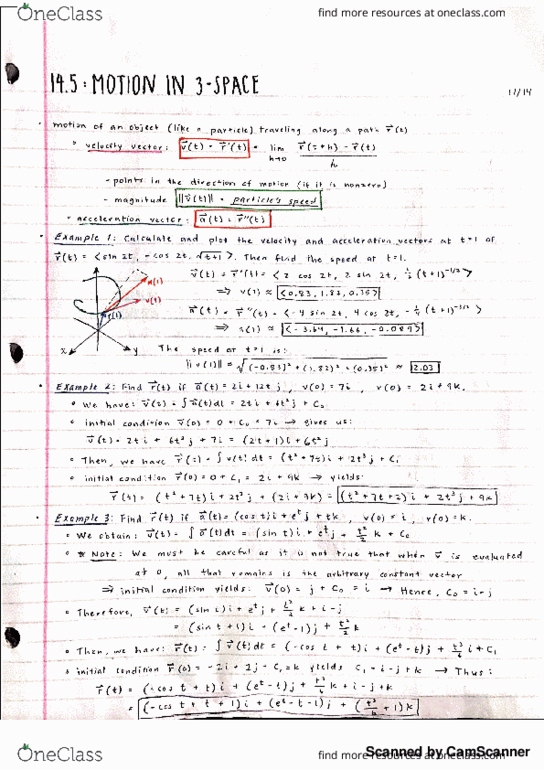 OneClass
find more resources at oneclass.com
14.5: MOTION IN 3-SPACE
11/14
• motion of an object (like a particle) traveling along a path r⃗(t)
• velocity vector: v⃗(t) = r⃗'(t) = lim h→0 r⃗(t+h) - r⃗(t) / h
- points in the direction of motion (if it is nonzero)
- magnitude ||v⃗(t)|| = particle's speed
• acceleration vector: a⃗(t) = r⃗''(t)
• Example 1: Calculate and plot the velocity and acceleration vectors at t=1 of
r⃗(t) = <sin 2t, -cos 2t, √t+1>. Then find the speed at t=1.
v⃗(t) = r⃗'(t) = <2 cos 2t, 2 sin 2t, ½ (t+1)^-1/2>
⇒ v(1) ≈ <-0.83, 1.82, 0.35>
a⃗(t) = r⃗''(t) = <-4 sin 2t, 4 cos 2t, -¼ (t+1)
⇒ a(1) ≈ <-3.64, -1.66, -0.089>
a(1)
v(1)
r(1)
x
y
The speed at t=1 is:
||v(1)|| = √(-0.83)² + (1.82)² + (0.35)² ≈ 2.03
• Example 2: Find r⃗(t) if a⃗(t) = 2i + 12t j, v(0) = 7i, r(0) = 2i + 9k.
• We have: v⃗(t) = ∫ a⃗(t)dt = 2ti + 6t² j + C₀
• initial condition v⃗(0) = 0 + C₀ = 7i → gives us:
v⃗(t) = 2ti + 6t² j + 7i = (2t+7)i + 6t² j
• Then, we have r⃗(t) = ∫ v(t) dt = (t² + 7t)i + 2t³ j + C₁
• initial condition r⃗(0) = 0 + C₁ = 2i + 9k → yields:
r⃗(t) = (t² + 7t)i + 2t³ j + (2i + 9k) = (t² + 7t + 2)i + 2t³ j + 9k
• Example 3: Find r⃗(t) if a⃗(t) = (cos t)i + eᵗ j + tk, v(0) = i, r(0) = k.
• We obtain: v⃗(t) = ∫ a⃗(t)dt = (sin t)i + eᵗ j + t²/2 k + C₀
• * Note: We must be careful as it is not true that when v⃗ is evaluated
at 0, all that remains is the arbitrary constant vector
⇒ initial condition yields: v⃗(0) = j + C₀ = i → Hence, C₀ = i-j
• Therefore, v⃗(t) = (sin t)i + eᵗ j + t²/2 k + i - j
= (sin t + 1)i + (eᵗ - 1)j + t²/2 k
• Then, we have: r⃗(t) = ∫ v⃗(t)dt = (-cos t + t)i + (eᵗ - t)j + t³/6 + C₁
• initial condition yields C₁ = i - j + k → Thus:
r⃗(t) = (-cos t + t)i + (eᵗ - t)j + t³/6 k + i - j + k
= (-cos t + t + 1)i + (eᵗ - t - 1)j + (t³/6 + 1)k
OneClass
find more resources at oneclass.com
Scanned by CamScanner